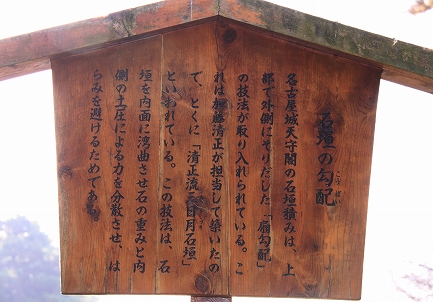 石垣の勾配
こうばい
名古屋城天守閣の石垣積みは、上
部で外側にそりだした「扇勾配」
の技法が取り入れられている。こ
れは加藤清正が担当して築いたの
で、とくに「清正流三日月石垣」
といわれている。この技法は、石
垣を内面に湾曲させ石の重みと内
側の土圧による力を分散させ、は
らみを避けるためである。